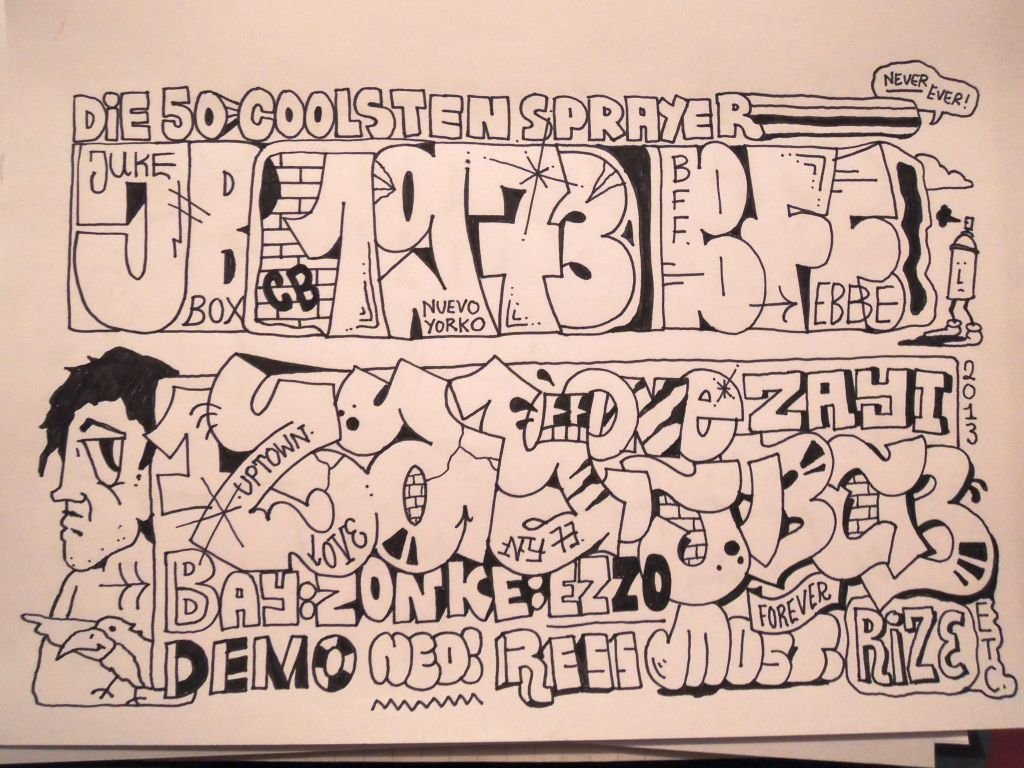 DiE 50 COOLSTEN SPRAYER
NEVER EVER!
JUKE
JB
BOX
CB
1973
NUEVO
YORKO
BFF
BFF
EBBE
L
2013
UPTOWN
LOVE
NY 73
ZAYI
JBCB
BAY:ZONKE:EZZO
FOREVER
DEMO NEO: RESS MUST. RiZE ETC.